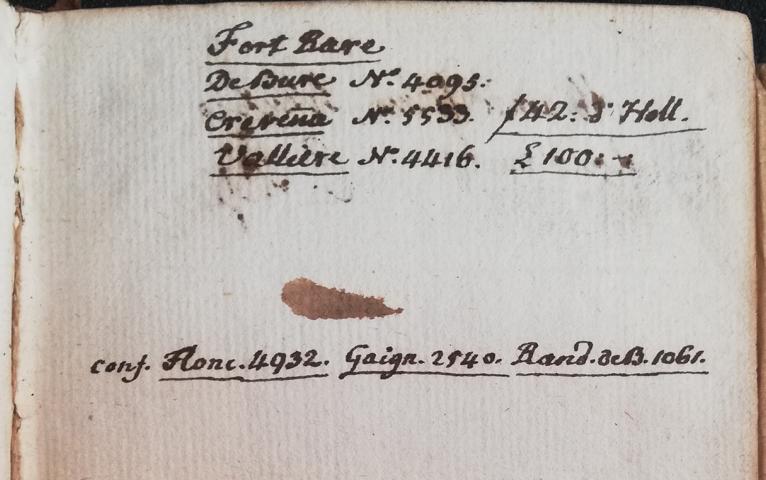 Fort Rare
De Bure N.o 4095.
Crevena N.o 5533. f 42: d' Holl.
Vallière N.o 4416. £ 100: -
conf. Flonc. 4932. Gaign. 2540. Rand. de B. 1061.